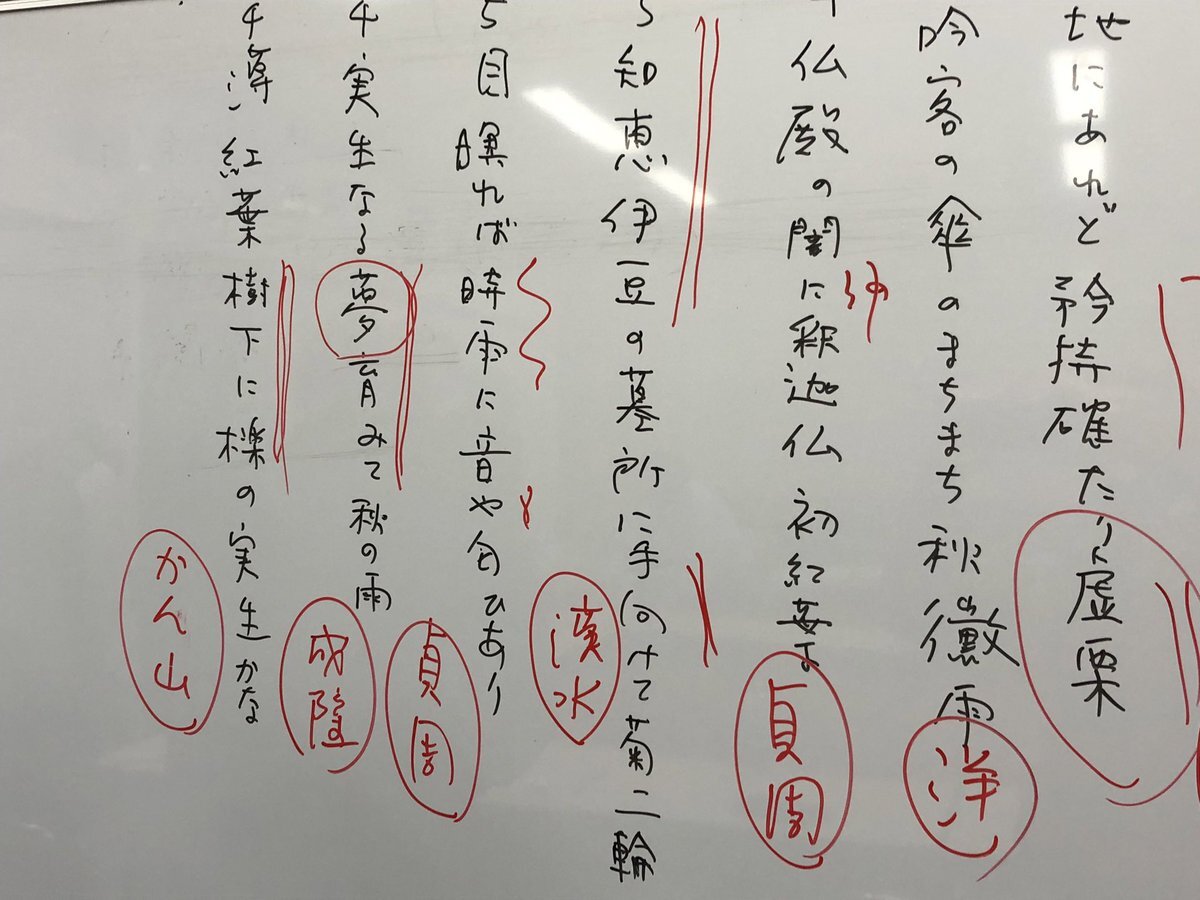 地にあれど矜持確たり虚栗
吟客の傘のまちまち秋黴雨
浄
仏殿の闇に釈迦仏初紅葉
ゆ
貞園
5 知恵伊豆の墓所に手向けて菊二輪
濱水
5 目瞑れば時雨に音や匂ひあり
貞園
4 実生なる夢育みて秋の雨
成隆
4 薄紅葉樹下に櫟の実生かな
かん山